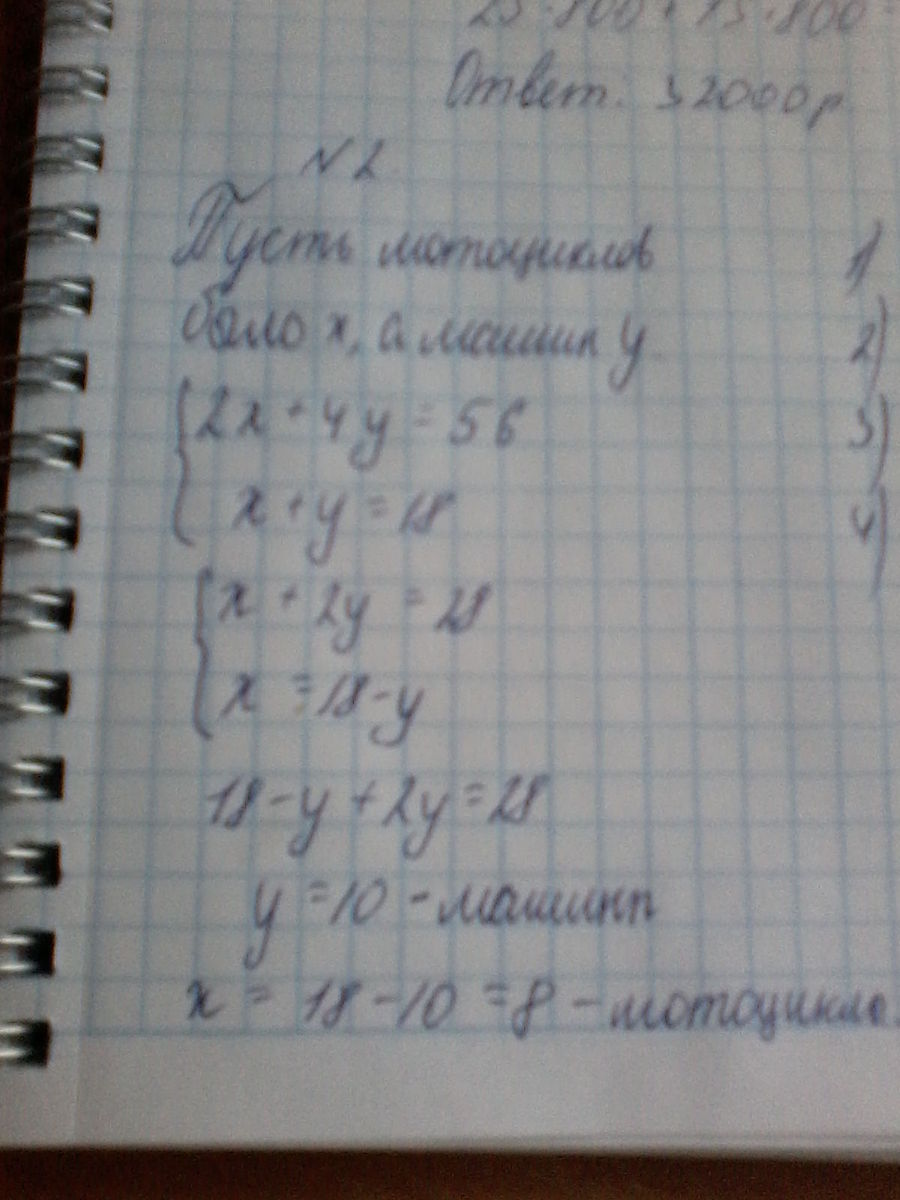 25·800+15·800=
Ответ: 32000р
№2
Пусть мотоциклов
было x, а машин y
2x+4y=56
x+y=18
x+2y=28
x=18-y
18-y+2y=28
y=10-машин
x=18-10=8-мотоцикло
1)
2)
3)
4)